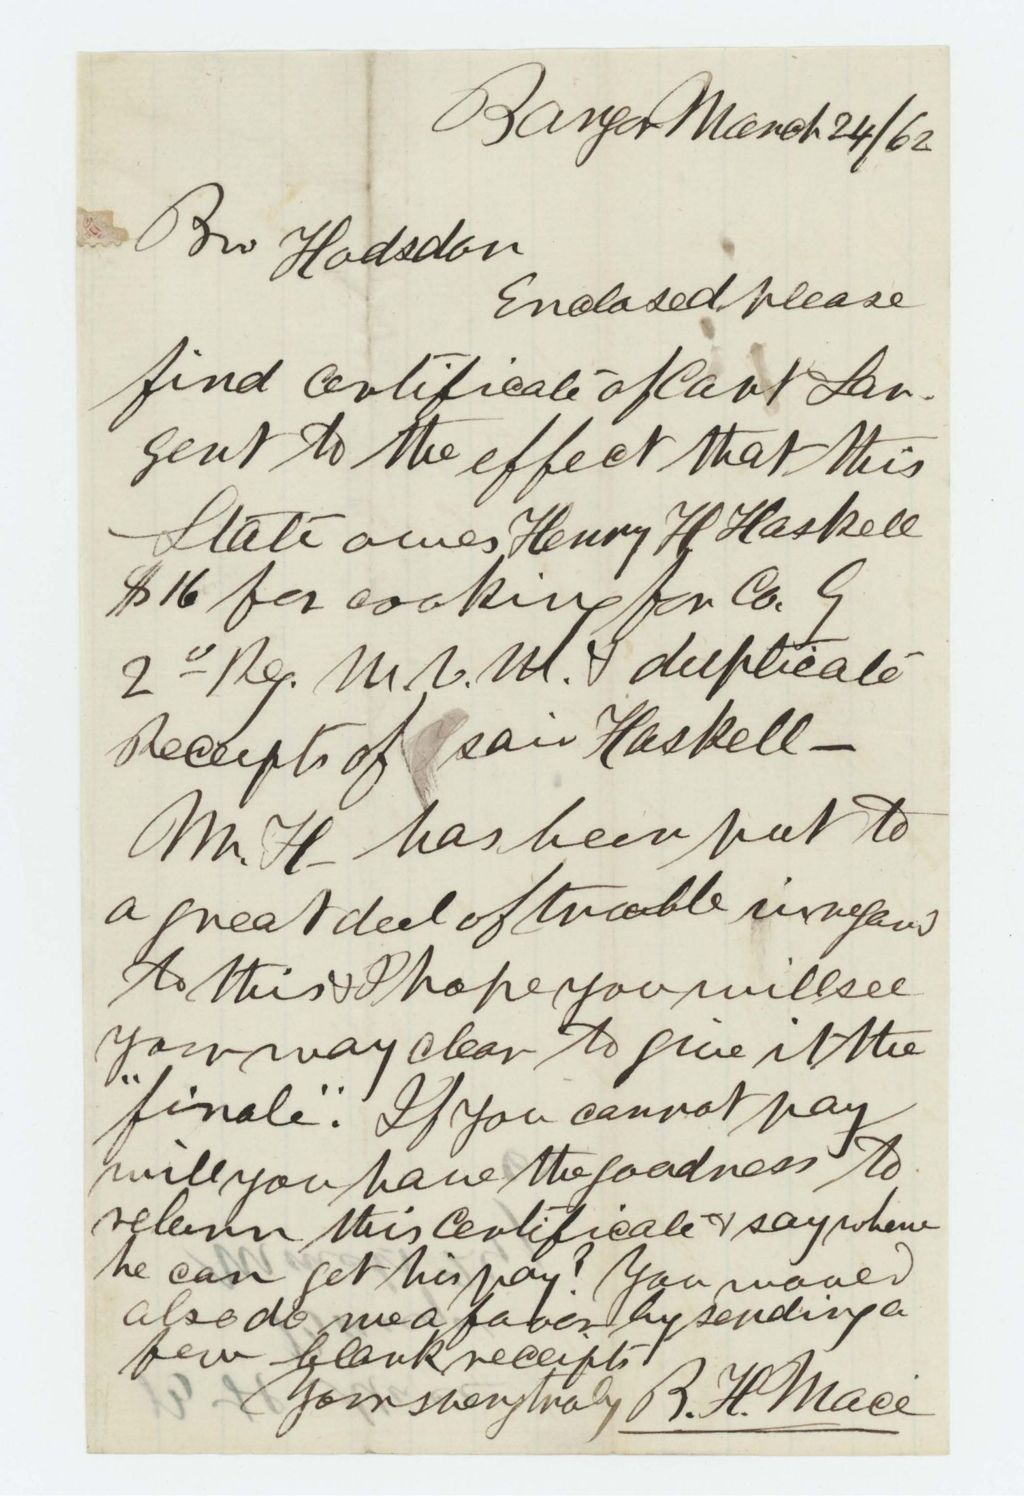 Bangor March 24/62
Bro Hodsdon
Enclosed please
find certificate of Capt Sar-
gent to the effect that this
State owes Henry H Haskell
$16 for cooking for Co. G
2d Reg. M. V. M. & duplicate
Receipts of said Haskell—
Mr. H— has been put to
a great deal of trouble in regard
to this & I hope you will see
your way clear to give it the
"finale". If you cannot pay
will you have the goodness to
return this Certificate & say where
he can get his pay? You would
also do me a favor by sending a
few blank receipts
Yours very truly R. H. Mace